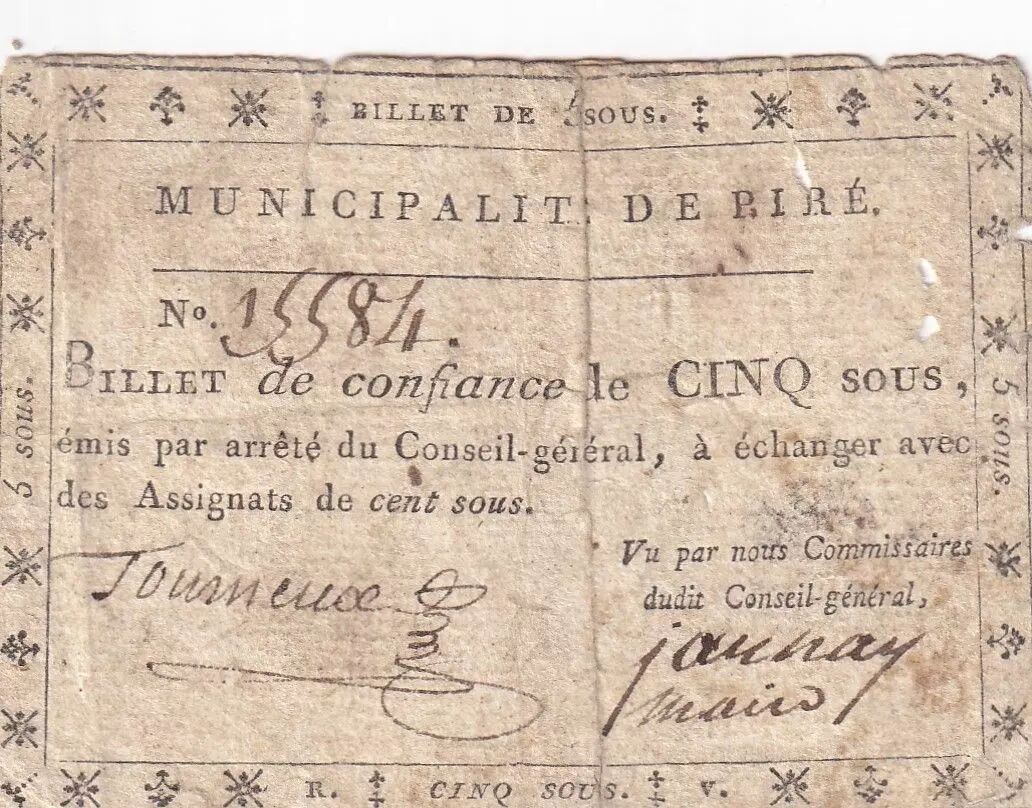 BILLET DE 5 SOUS.
MUNICIPALIT DE PIRÉ.
No. 15584.
BILLET de confiance de CINQ SOUS,
émis par arrêté du Conseil-général, à échanger avec
des Assignats de cent sous.
Vu par nous Commissaires
dudit Conseil-général,
Tourneux
jaunay
maire
5 sous.
5 sous.
R. CINQ SOUS. V.